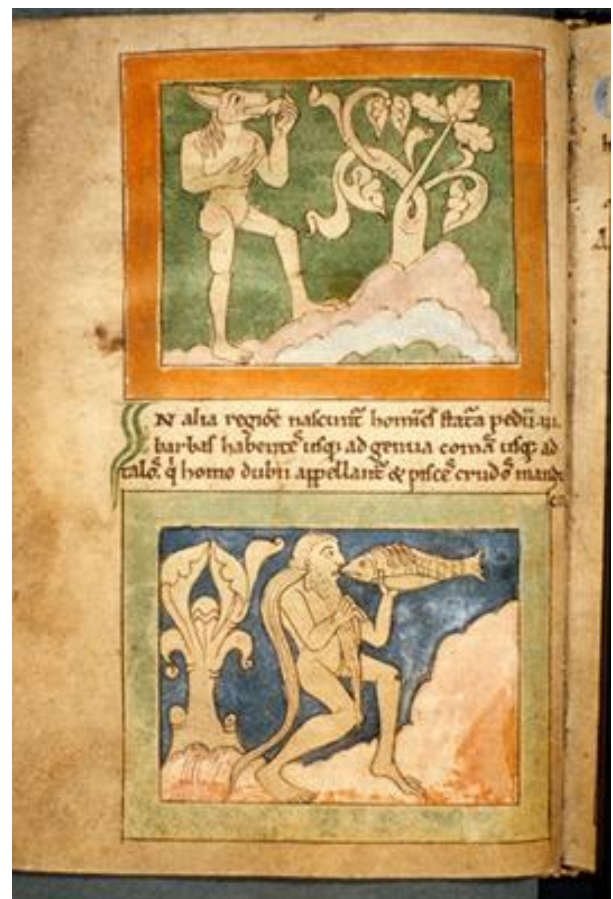 IN alia regiōe nascunt̄ homīes stat̄a pedū ui.
barbas habentē usq; ad genua comā usq; ad
talō. q̇ homo dubii appellant̄ & piscē crudō mandu